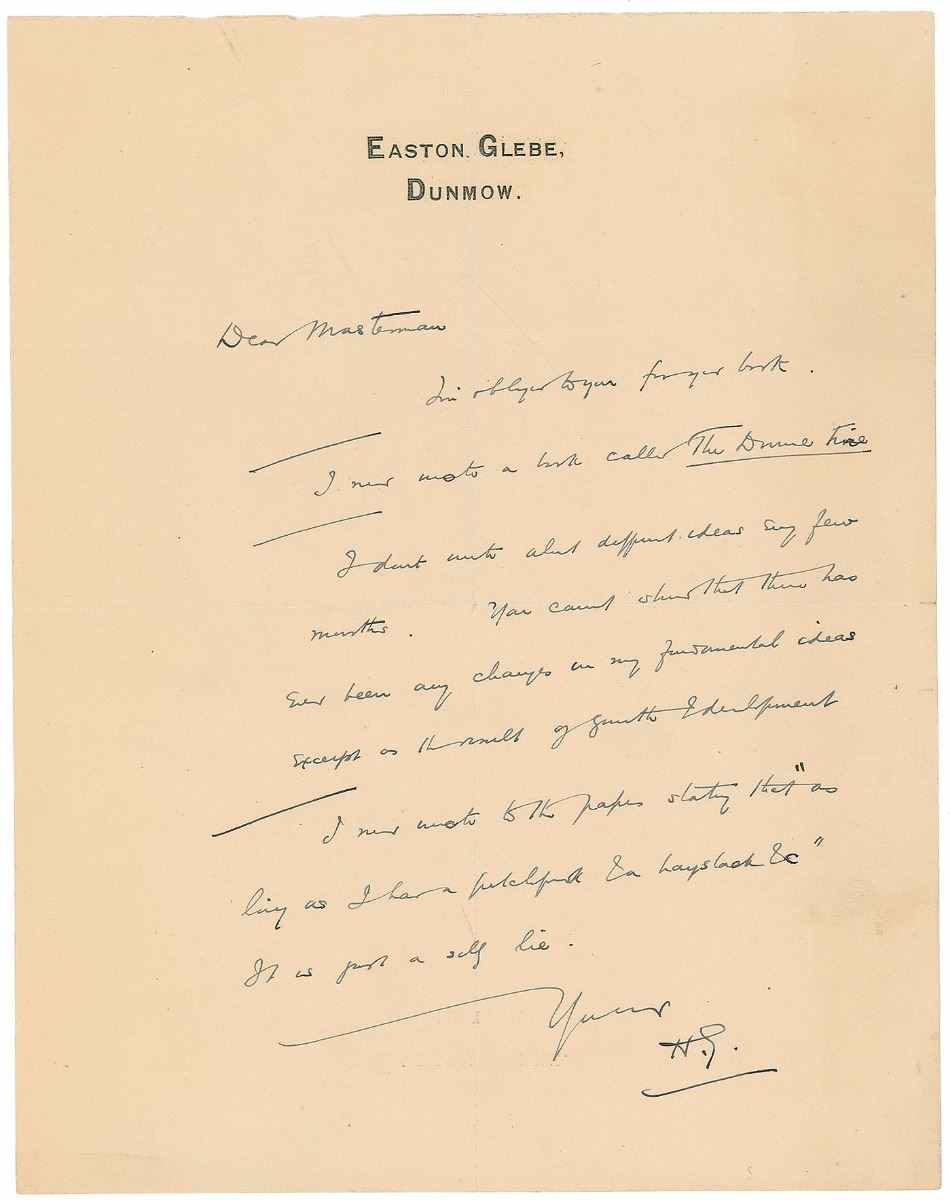 EASTON GLEBE,
DUNMOW.
Dear Masterman
I'm obliged to you for your book.
I never wrote a book called The Divine
I dont write about different ideas every few
months. You cannot show that there has
ever been any changes in my fundamental ideas
except as the result of growth & development
I never wrote to the papers stating that "as
long as I have a pitchfork & a haystack &c"
It is just a silly lie.
Yours
H.G.